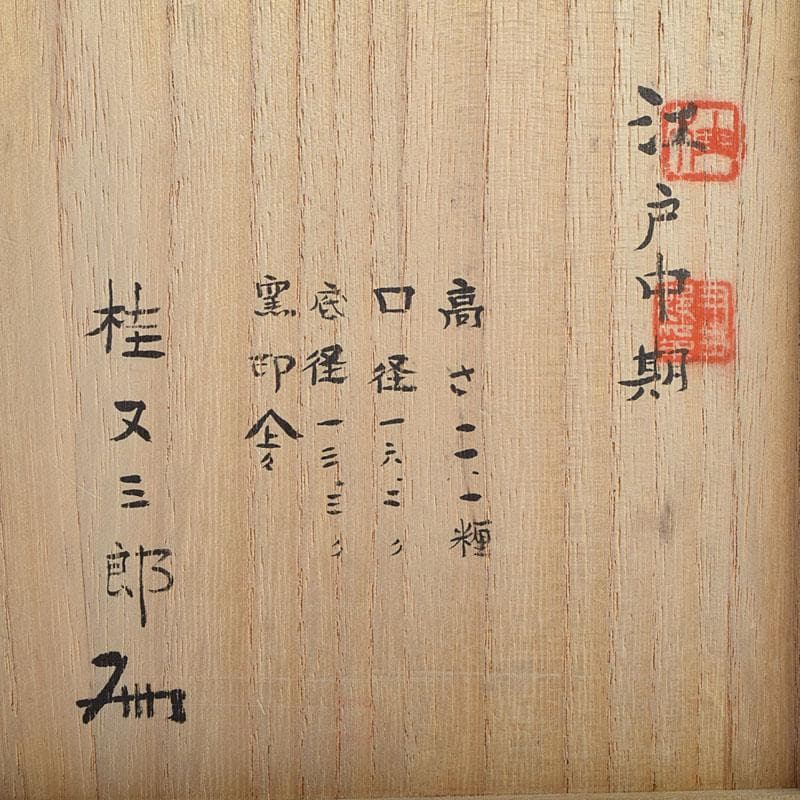 江戸中期
高さ二一.一糎
口径一六.二〃
底径一三.三〃
窯印 上々
桂又三郎